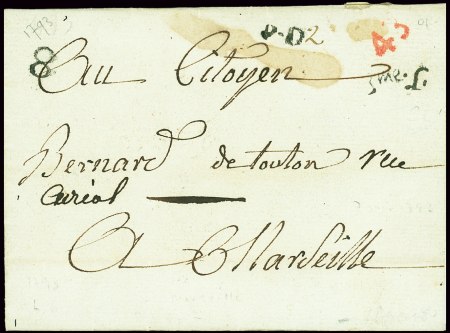 1793
P.D2
8
Au Citoyen
Bernard de toulon rue
Curiol
A Marseille